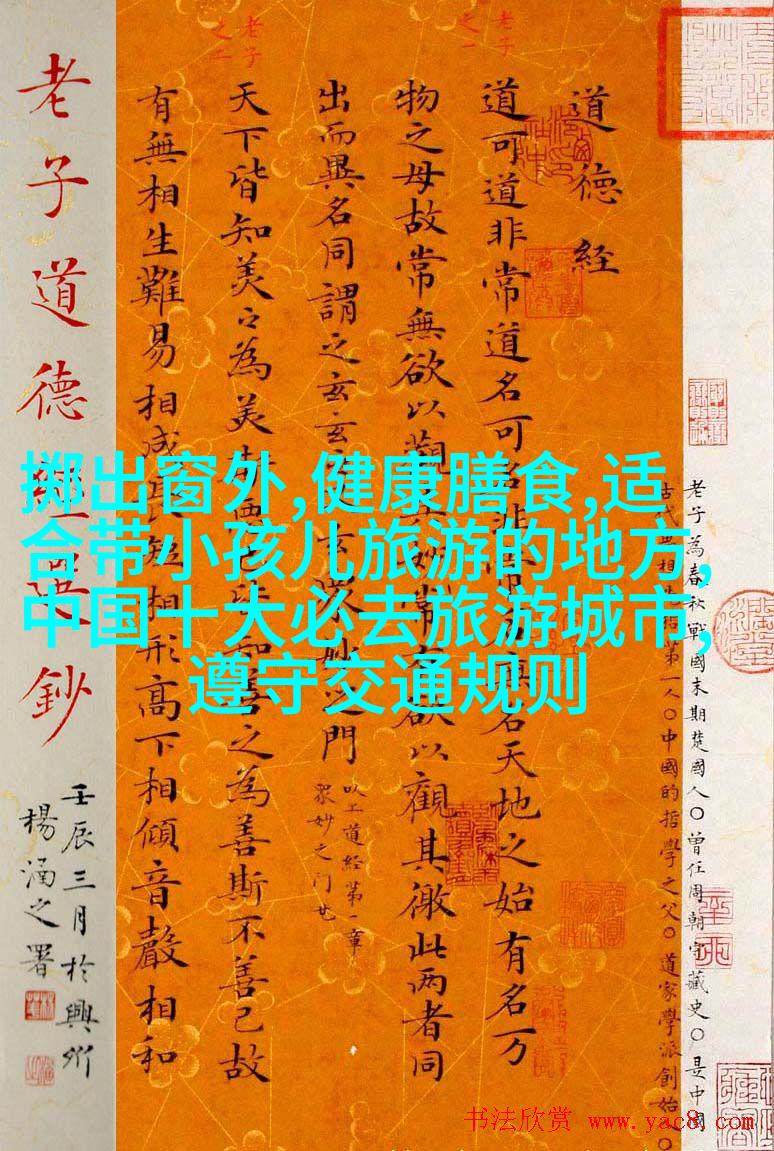 掷出窗外,健康膳食,适
合带小孩儿旅游的地方,
中国十大必去旅游城市,
遵守交通规则
老子為春秋戰國末期楚國人〇曾任周朝守藏史〇是中國
古代思想第一人〇中國的哲學之父〇道家學派創始〇
道德經
老子之一
道可道非常道名可名非常名天地之始有名万
物之母故常無欲以觀其妙常有欲以觀其徼此两者同
出而異名同謂之玄玄之又玄衆妙之門
以上道經第一章
老子之二
天下皆知美々為美斯皆知善之為善斯不善已故
有無相生難易相成長短相形高下相傾音聲相和
老子道德經選鈔
壬辰三月於興
楊涵之署
书法欣赏 www.yac8.com